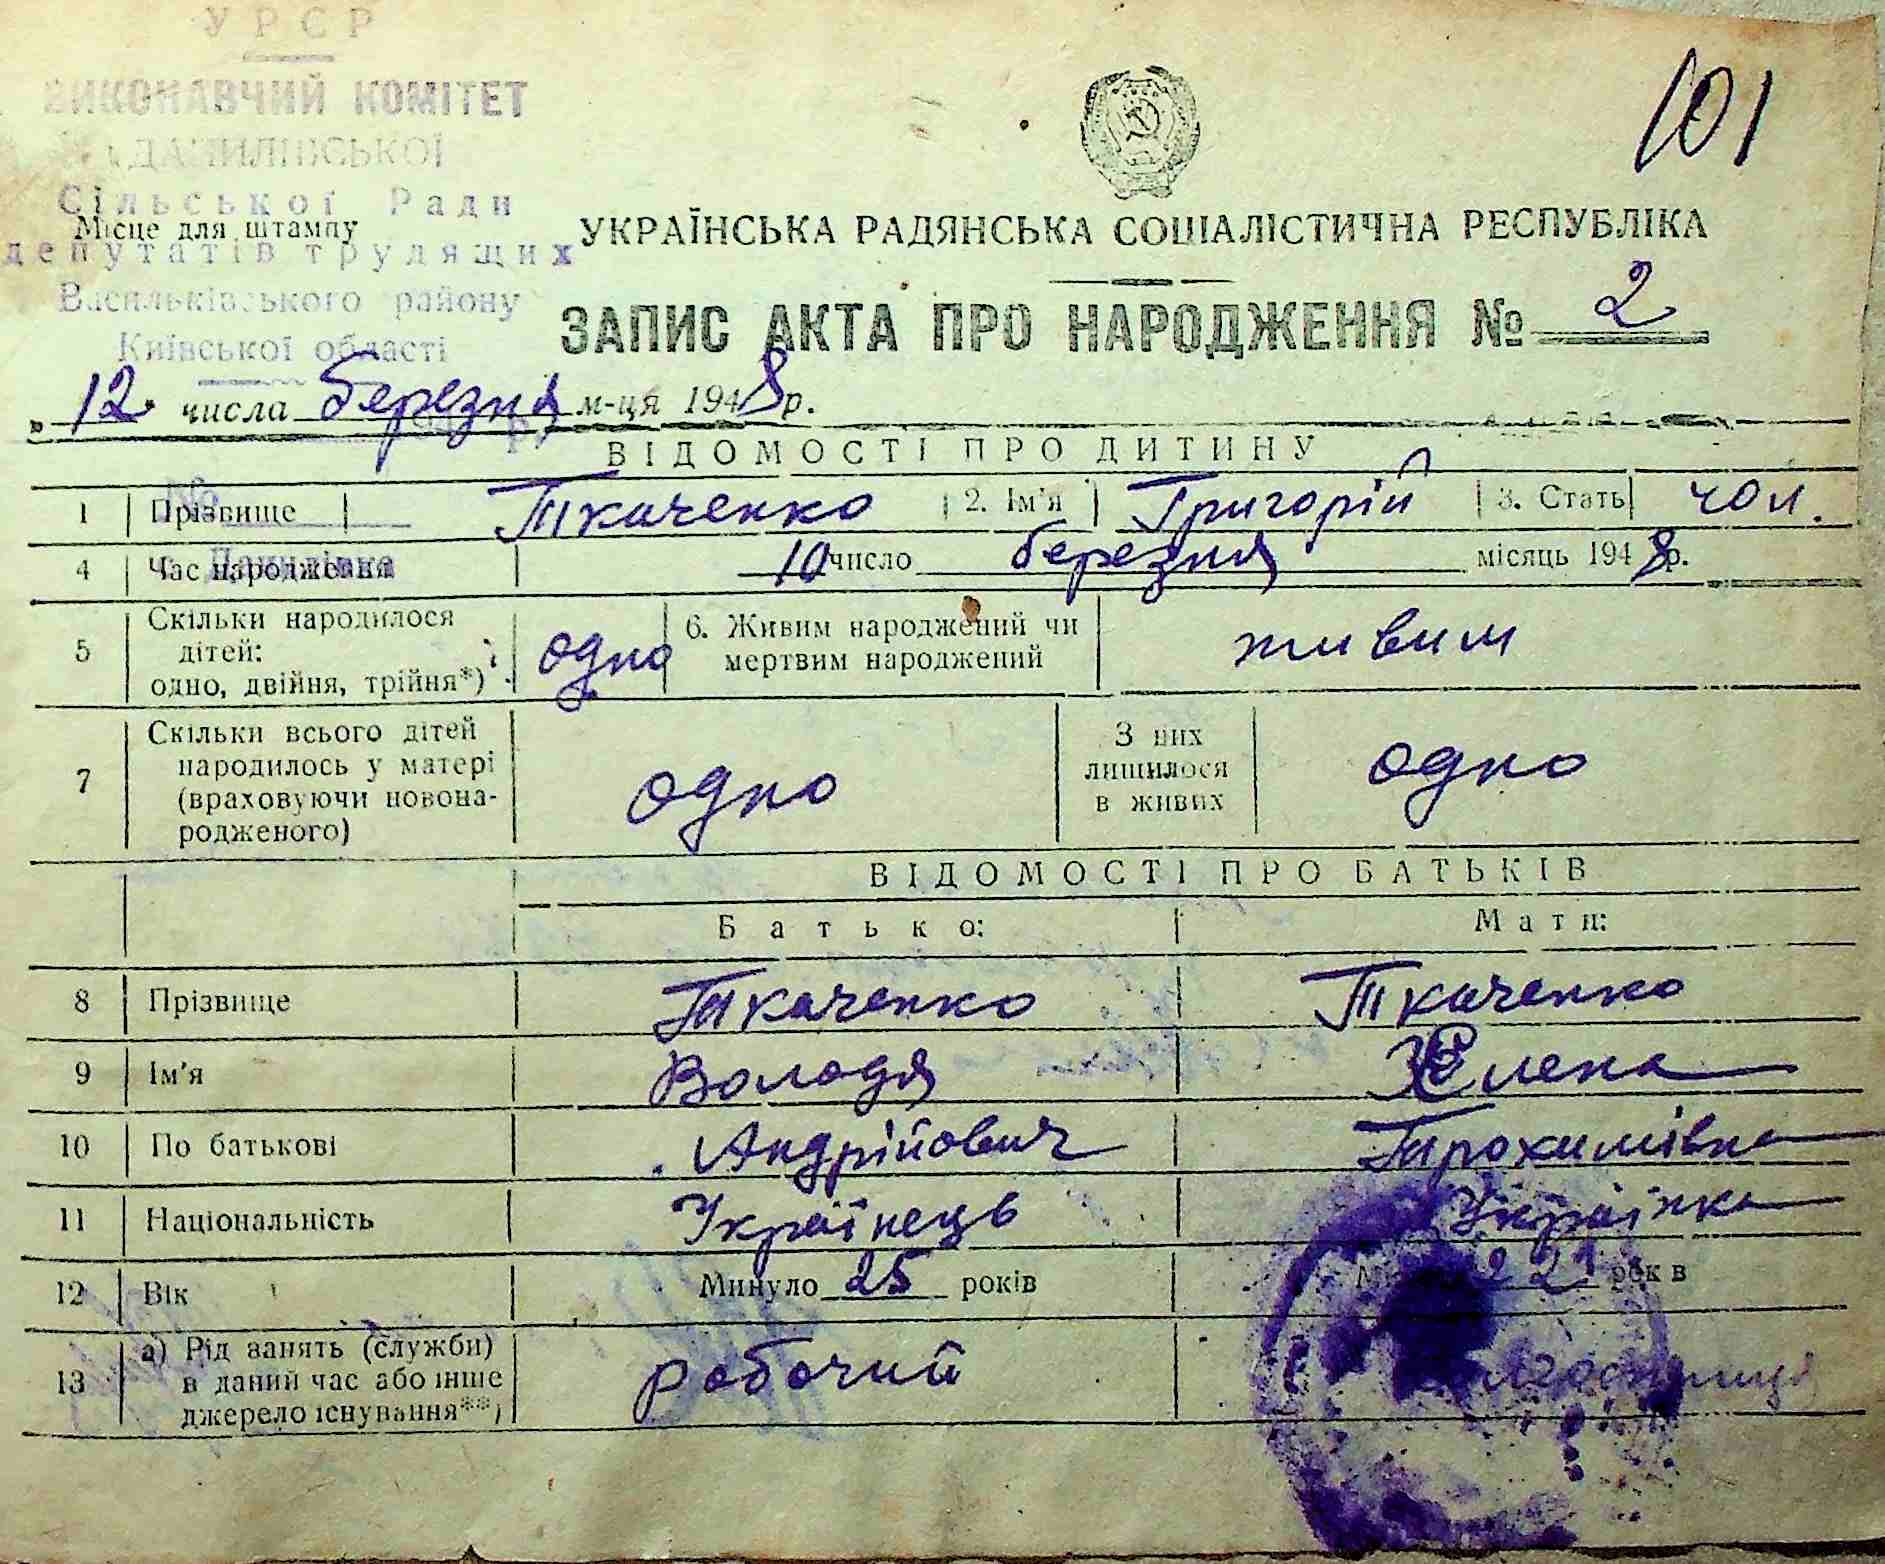 УРСР
101
ВИКОНАВЧИЙ КОМІТЕТ
ДАНИЛІВСЬКОЇ
Сільської Ради
Місце для штампу
УКРАЇНСЬКА РАДЯНСЬКА СОЦІАЛІСТИЧНА РЕСПУБЛІКА
депутатів трудящих
Васильківського району
ЗАПИС АКТА ПРО НАРОДЖЕННЯ № 2
Київської області
„ 12 числа березня м-ця 1948 р.
ВІДОМОСТІ ПРО ДИТИНУ
№
1 Прізвище Ткаченко 2. Ім'я Григорій 3. Стать чол.
с. Данилівка
4 Час народження 10 число березня місяць 1948 р.
5 Скільки народилося дітей: одно, двійня, трійня*) одно 6. Живим народжений чи мертвим народжений живим
7 Скільки всього дітей народилось у матері (враховуючи новонародженого) одно З них лишилося в живих одно
ВІДОМОСТІ ПРО БАТЬКІВ
Батько: Мати:
8 Прізвище Ткаченко Ткаченко
9 Ім'я Володя Єлена
10 По батькові Андрійович Трохимівна
11 Національність Українець Українка
12 Вік Минуло 25 років 21 років
13 а) Рід занять (служби) в даний час або інше джерело існування**) робочий